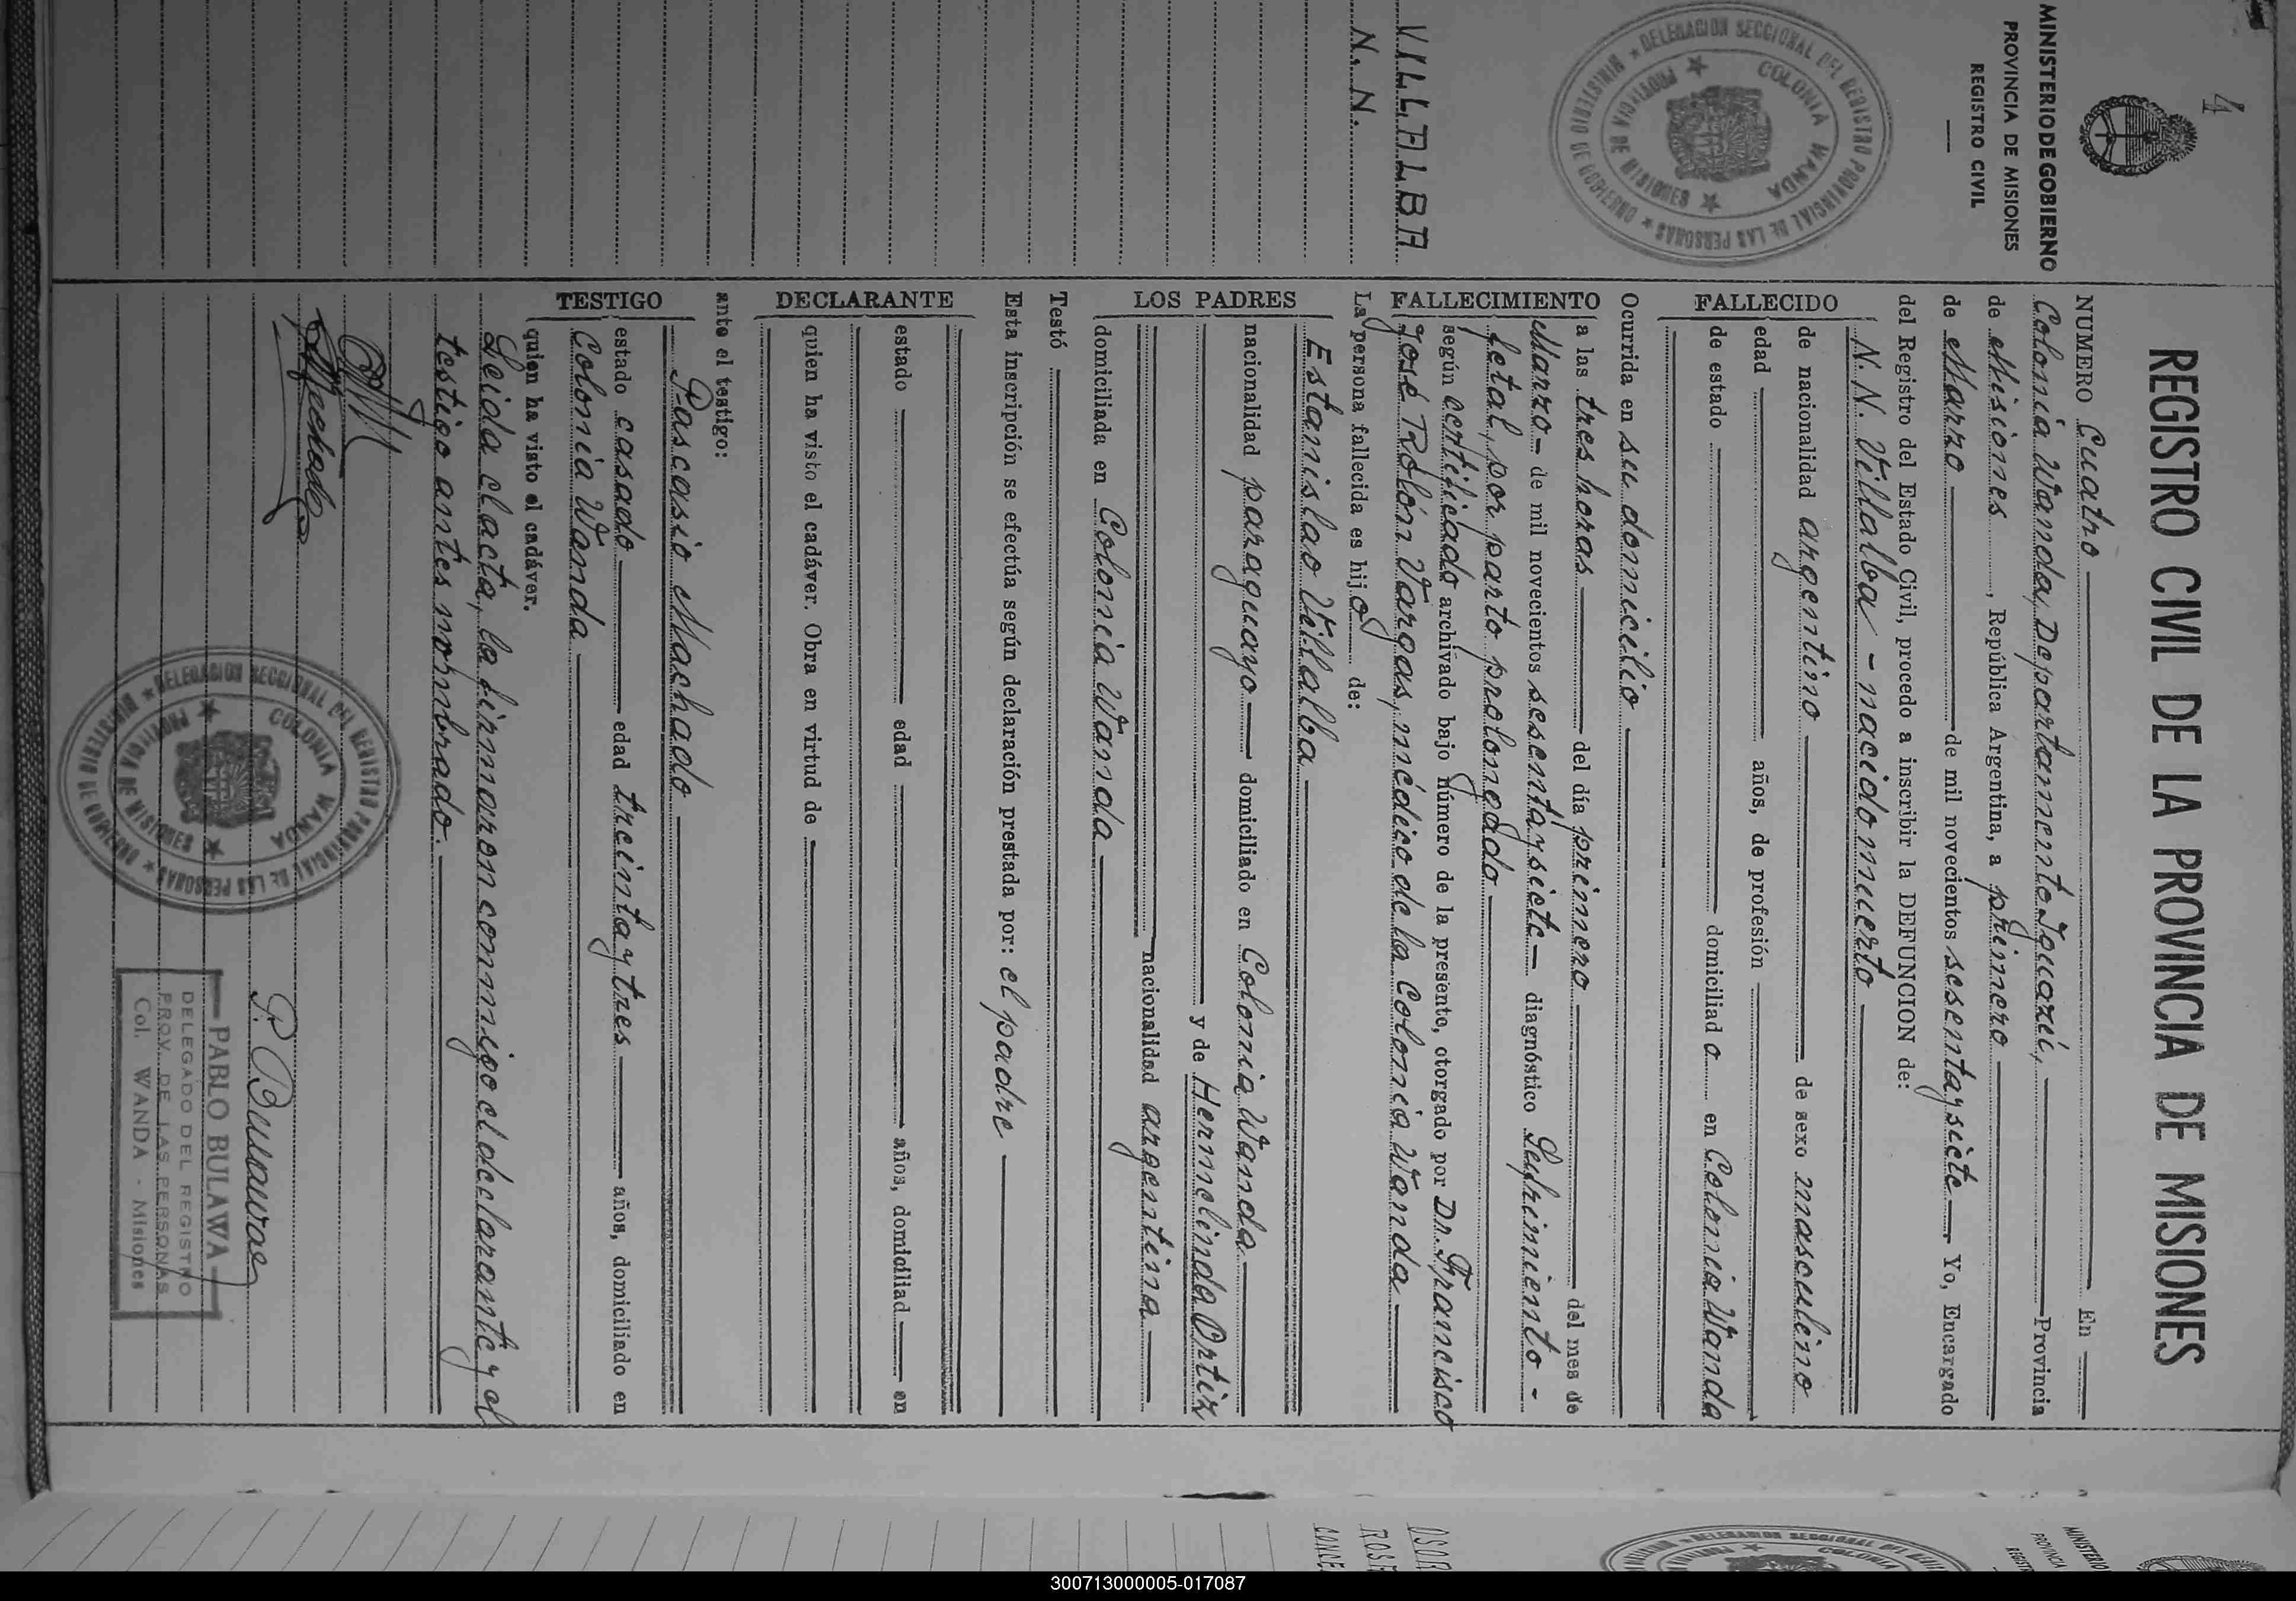 4
MINISTERIO DE GOBIERNO
PROVINCIA DE MISIONES
REGISTRO CIVIL
DELEGACION SECCIONAL DEL REGISTRO PROVINSIAL DE LAS PERSONAS
MINISTERIO DE GOBIERNO
COLONIA WANDA
PROVINCIA DE MISIONES
VILLALBA
N. N.
REGISTRO CIVIL DE LA PROVINCIA DE MISIONES
NUMERO Cuatro En
Colonia Wanda, Departamento Iguazú, Provincia
de Misiones, República Argentina, a primero
de Marzo de mil novecientos sesentaysiete Yo, Encargado
del Registro del Estado Civil, procedo a inscribir la DEFUNCION de:
FALLECIDO
N. N. Villalba - nacido muerto
de nacionalidad argentino de sexo masculino
edad años, de profesión
de estado domiciliad o en Colonia Wanda
Ocurrida en su domicilio
FALLECIMIENTO
a las tres horas del día primero del mes de
Marzo de mil novecientos sesentaysiete diagnóstico Sufrimiento -
fetal, por parto prolongado
según certificado archivado bajo número de la presente, otorgado por Dr. Francisco
José Rolón Vargas, médico de la Colonia Wanda
La persona fallecida es hijo de:
LOS PADRES
Estanislao Villalba
nacionalidad paraguayo domiciliado en Colonia Wanda
y de Hermelinda Ortiz
nacionalidad argentina
domiciliada en Colonia Wanda
Testó
Esta inscripción se efectúa según declaración prestada por: el padre
DECLARANTE
estado edad años, domiciliad en
quien ha visto el cadáver. Obra en virtud de
ante el testigo:
TESTIGO
Pascasio Machado
estado casado edad treintaytres años, domiciliado en
Colonia Wanda
quien ha visto el cadáver.
Leida el acta, la firmaron conmigo el declarante y el
testigo antes nombrado.
Machado
DELEGACION SECCIONAL DEL REGISTRO PROVINSIAL DE LAS PERSONAS
MINISTERIO DE GOBIERNO
COLONIA WANDA
PROVINCIA DE MISIONES
P. Bulawa
PABLO BULAWA
DELEGADO DEL REGISTRO
PROV. DE LAS PERSONAS
Col. WANDA - Misiones
MINISTERIO
PROVINCIA
300713000005-017087